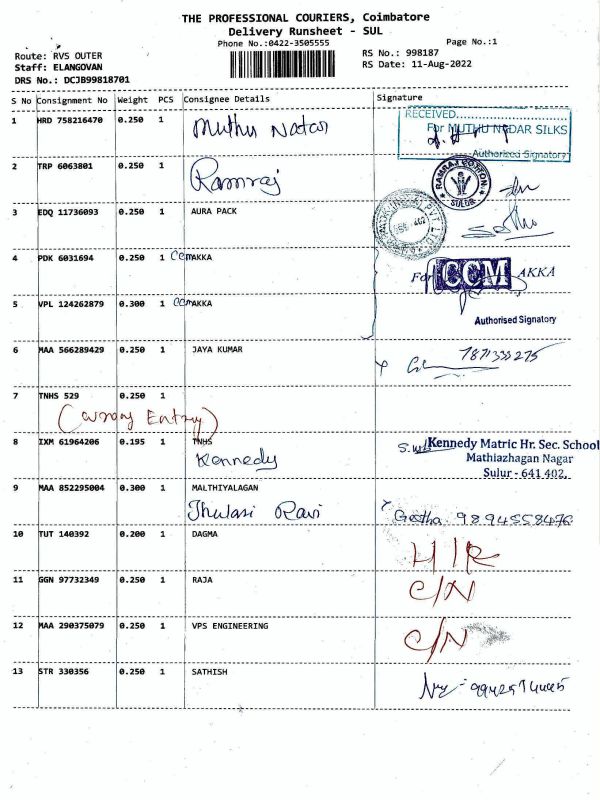 THE PROFESSIONAL COURIERS, Coimbatore
Delivery Runsheet - SUL
Phone No.:0422-3505555
Page No.:1
Route: RVS OUTER
RS No.: 998187
Staff: ELANGOVAN
RS Date: 11-Aug-2022
DRS No.: DCJB99818701
S No Consignment No Weight PCS Consignee Details Signature
1 HRD 758216470 0.250 1 Muthu Nadar
RECEIVED
For MUTHU NADAR SILKS
Authorised Signatory
2 TRP 6063801 0.250 1 Ramraj
RAMRAJ COTTON
SULUR
3 EDQ 11736093 0.250 1 AURA PACK
4 PDK 6031694 0.250 1 CCM AKKA
For CCM AKKA
5 VPL 124262879 0.300 1 CCM AKKA
Authorised Signatory
6 MAA 566289429 0.250 1 JAYA KUMAR
7 TNHS 529 0.250 1
(Wrong Entry)
8 IXM 61964206 0.195 1 TNHS
Kennedy
Kennedy Matric Hr. Sec. School
Mathiazhagan Nagar
Sulur - 641 402.
9 MAA 852295004 0.300 1 MALTHIYALAGAN
Thulasi Ravi
Geetha 9894558476
10 TUT 140392 0.200 1 DAGMA
11 GGN 97732349 0.250 1 RAJA C/N
12 MAA 290375079 0.250 1 VPS ENGINEERING C/N
13 STR 330356 0.250 1 SATHISH